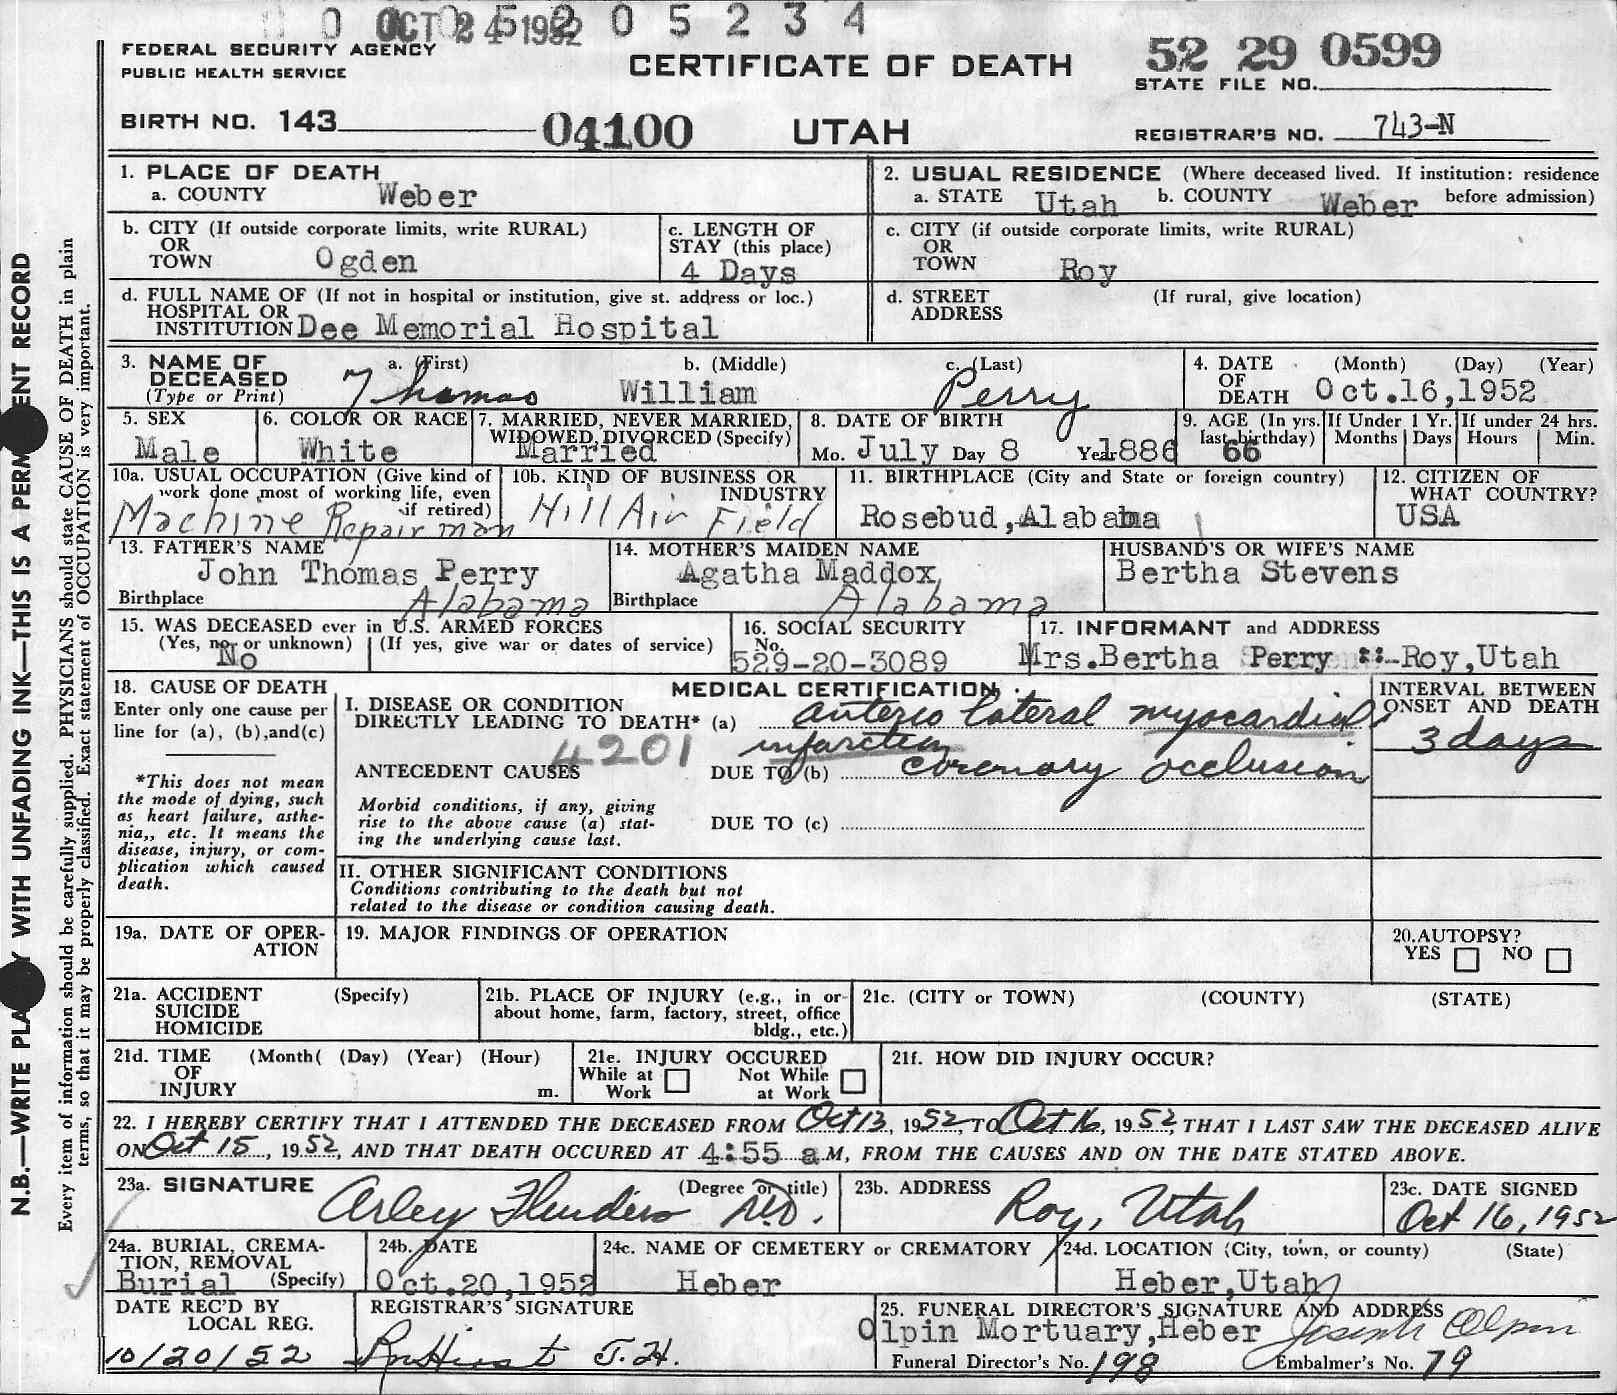 OCT 24 1952 0 5 2 0 5 2 3 4
FEDERAL SECURITY AGENCY
PUBLIC HEALTH SERVICE
CERTIFICATE OF DEATH
52 29 0599
STATE FILE NO.
BIRTH NO. 143 04100 UTAH REGISTRAR'S NO. 743-N
1. PLACE OF DEATH
a. COUNTY Weber
2. USUAL RESIDENCE (Where deceased lived. If institution: residence before admission)
a. STATE Utah b. COUNTY Weber
b. CITY (If outside corporate limits, write RURAL) OR TOWN Ogden
c. LENGTH OF STAY (this place) 4 Days
c. CITY (if outside corporate limits, write RURAL) OR TOWN Roy
d. FULL NAME OF (If not in hospital or institution, give st. address or loc.)
HOSPITAL OR
INSTITUTION Dee Memorial Hospital
d. STREET ADDRESS (If rural, give location)
3. NAME OF DECEASED (Type or Print)
a. (First) Thomas b. (Middle) William c. (Last) Perry
4. DATE OF DEATH (Month) (Day) (Year) Oct.16,1952
5. SEX Male
6. COLOR OR RACE White
7. MARRIED, NEVER MARRIED, WIDOWED, DIVORCED (Specify) Married
8. DATE OF BIRTH Mo. July Day 8 Year 1886
9. AGE (In yrs. last birthday) 66 If Under 1 Yr. Months Days If under 24 hrs. Hours Min.
10a. USUAL OCCUPATION (Give kind of work done most of working life, even if retired) Machine Repairman
10b. KIND OF BUSINESS OR INDUSTRY Hill Air Field
11. BIRTHPLACE (City and State or foreign country) Rosebud, Alabama
12. CITIZEN OF WHAT COUNTRY? USA
13. FATHER'S NAME John Thomas Perry
Birthplace Alabama
14. MOTHER'S MAIDEN NAME Agatha Maddox
Birthplace Alabama
HUSBAND'S OR WIFE'S NAME Bertha Stevens
15. WAS DECEASED ever in U.S. ARMED FORCES
(Yes, no, or unknown) No (If yes, give war or dates of service)
16. SOCIAL SECURITY No. 529-20-3089
17. INFORMANT and ADDRESS Mrs.Bertha Perry --Roy,Utah
18. CAUSE OF DEATH
Enter only one cause per
line for (a), (b),and(c)
*This does not mean
the mode of dying, such
as heart failure, asthe-
nia,, etc. It means the
disease, injury, or com-
plication which caused
death.
MEDICAL CERTIFICATION
I. DISEASE OR CONDITION
DIRECTLY LEADING TO DEATH* (a) antero lateral myocardial
infarction
4201
ANTECEDENT CAUSES DUE TO (b) coronary occlusion
Morbid conditions, if any, giving
rise to the above cause (a) stat-
ing the underlying cause last.
DUE TO (c)
II. OTHER SIGNIFICANT CONDITIONS
Conditions contributing to the death but not
related to the disease or condition causing death.
INTERVAL BETWEEN
ONSET AND DEATH
3 days
19a. DATE OF OPER-
ATION
19. MAJOR FINDINGS OF OPERATION
20.AUTOPSY?
YES NO
21a. ACCIDENT (Specify)
SUICIDE
HOMICIDE
21b. PLACE OF INJURY (e.g., in or
about home, farm, factory, street, office
bldg., etc.)
21c. (CITY or TOWN) (COUNTY) (STATE)
21d. TIME (Month( (Day) (Year) (Hour)
OF
INJURY m.
21e. INJURY OCCURED
While at Work Not While at Work
21f. HOW DID INJURY OCCUR?
22. I HEREBY CERTIFY THAT I ATTENDED THE DECEASED FROM Oct 13, 1952, TO Oct 16, 1952, THAT I LAST SAW THE DECEASED ALIVE
ON Oct 15, 1952, AND THAT DEATH OCCURED AT 4:55 a M, FROM THE CAUSES AND ON THE DATE STATED ABOVE.
23a. SIGNATURE (Degree or title) Arley Flinders M.D.
23b. ADDRESS Roy, Utah
23c. DATE SIGNED Oct 16, 1952
24a. BURIAL, CREMA-
TION, REMOVAL
Burial (Specify)
24b. DATE Oct.20,1952
24c. NAME OF CEMETERY or CREMATORY Heber
24d. LOCATION (City, town, or county) (State) Heber,Utah
DATE REC'D BY LOCAL REG. 10/20/52
REGISTRAR'S SIGNATURE
25. FUNERAL DIRECTOR'S SIGNATURE AND ADDRESS
Olpin Mortuary,Heber Joseph Olpin
Funeral Director's No. 198 Embalmer's No. 79
N.B.—WRITE WITH UNFADING INK—THIS IS A RECORD
Every item of information should be carefully supplied. PHYSICIANS should state CAUSE OF DEATH in plain
terms, so that it may be properly classified. Exact statement of OCCUPATION is very important.